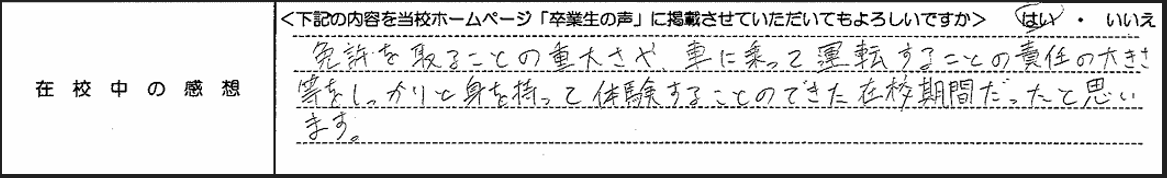 <下記の内容を当校ホームページ「卒業生の声」に掲載させていただいてもよろしいですか> はい ・ いいえ
在校中の感想
免許を取ることの重大さや、車に乗って運転することの責任の大きさ
等をしっかりと身を持って体験することのできた在校期間だったと思い
ます。